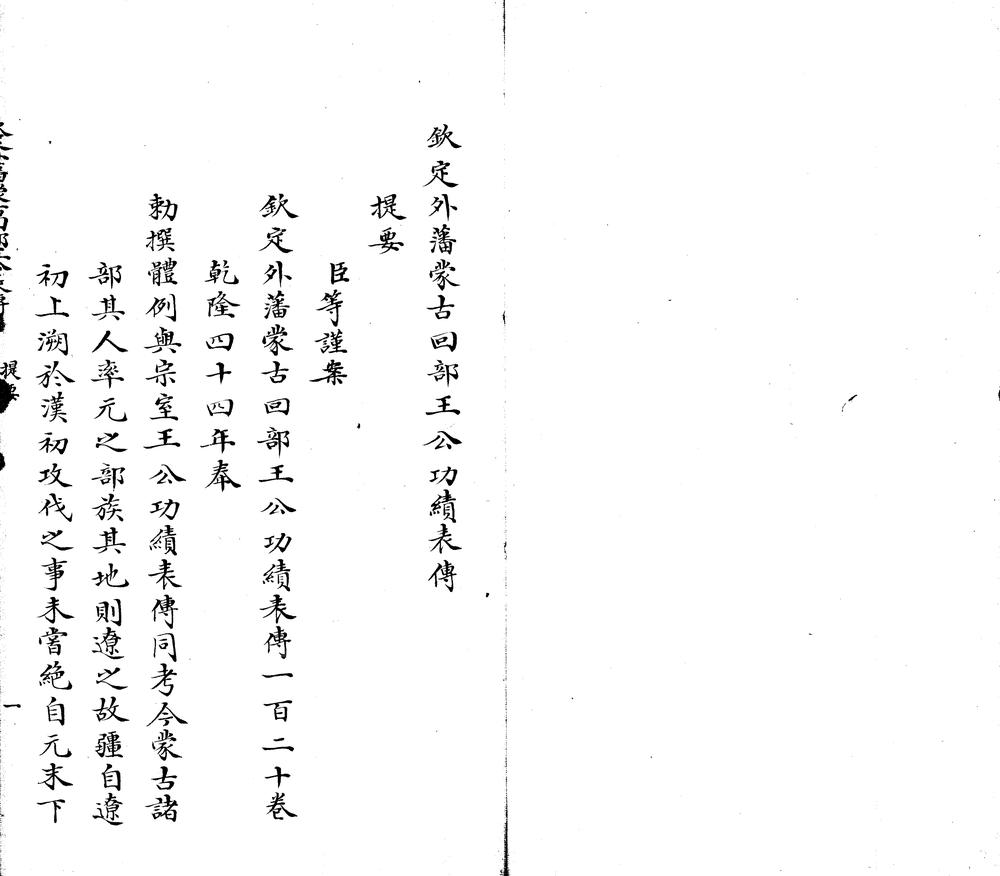 欽定外藩蒙古回部王公功績表傳
提要
臣等謹案
欽定外藩蒙古回部王公功績表傳一百二十卷
乾隆四十四年奉
勅撰體例與宗室王公功績表傳同考今蒙古諸
部其人率元之部族其地則遼之故疆自遼
初上溯於漢初攻伐之事未嘗絶自元末下
提要
一